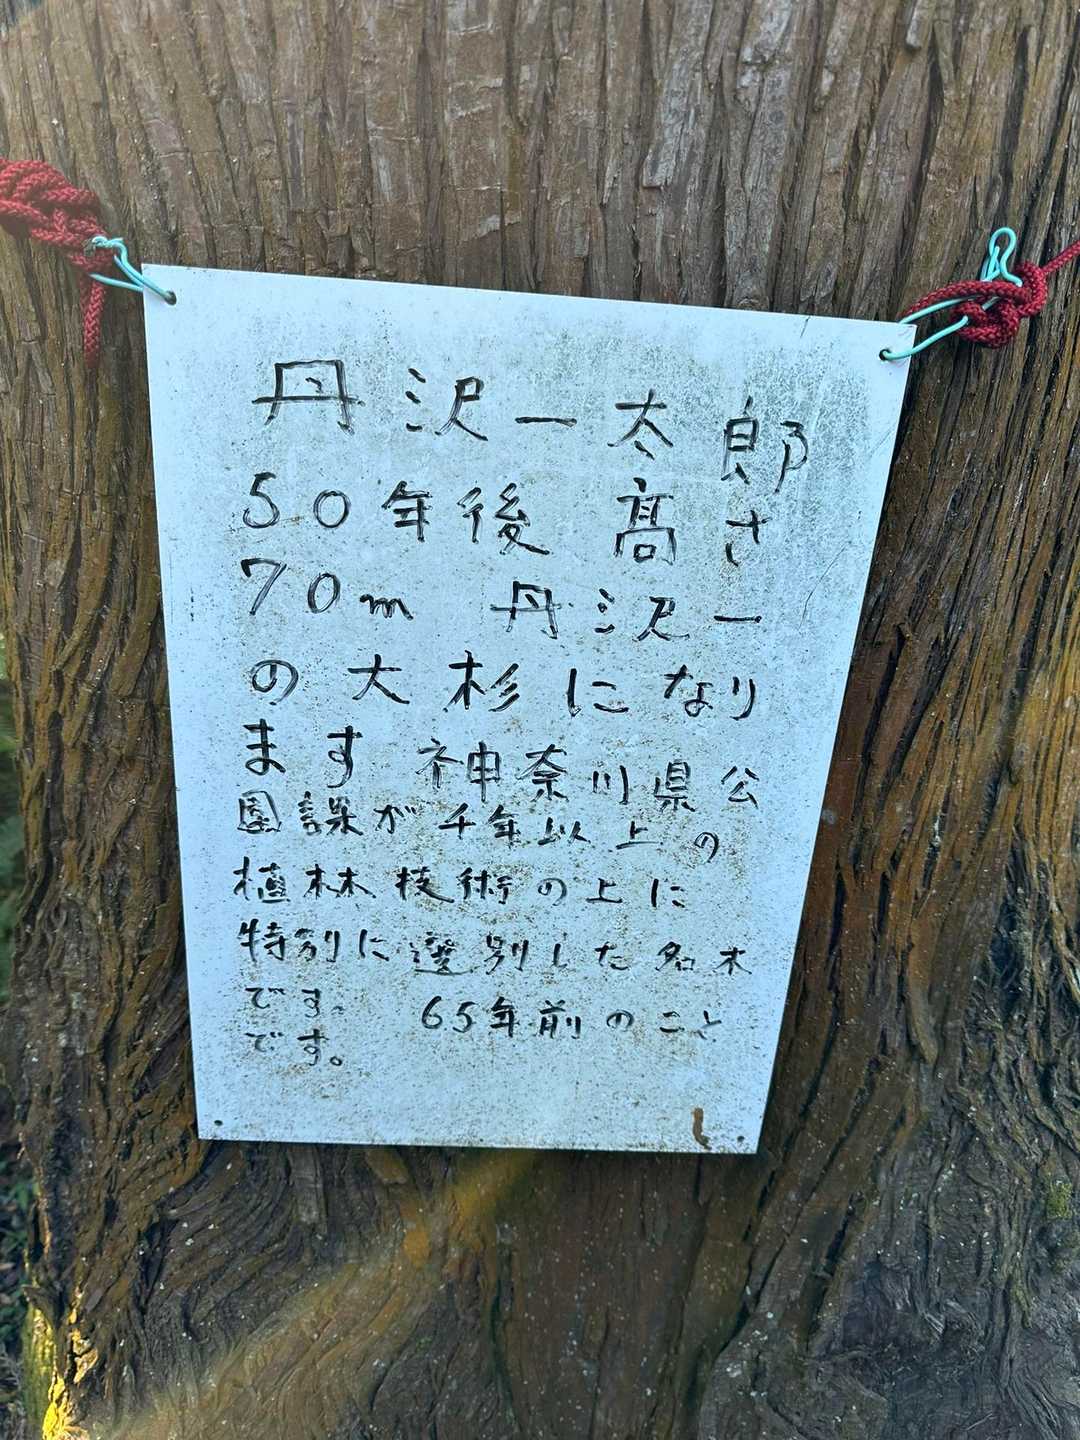 丹沢一太郎
50年後 髙さ
70m 丹沢一
の大杉になり
ます 神奈川県公
園課が千年以上の
植林技術の上に
特別に選別した名木
です。 65年前のこと
です。